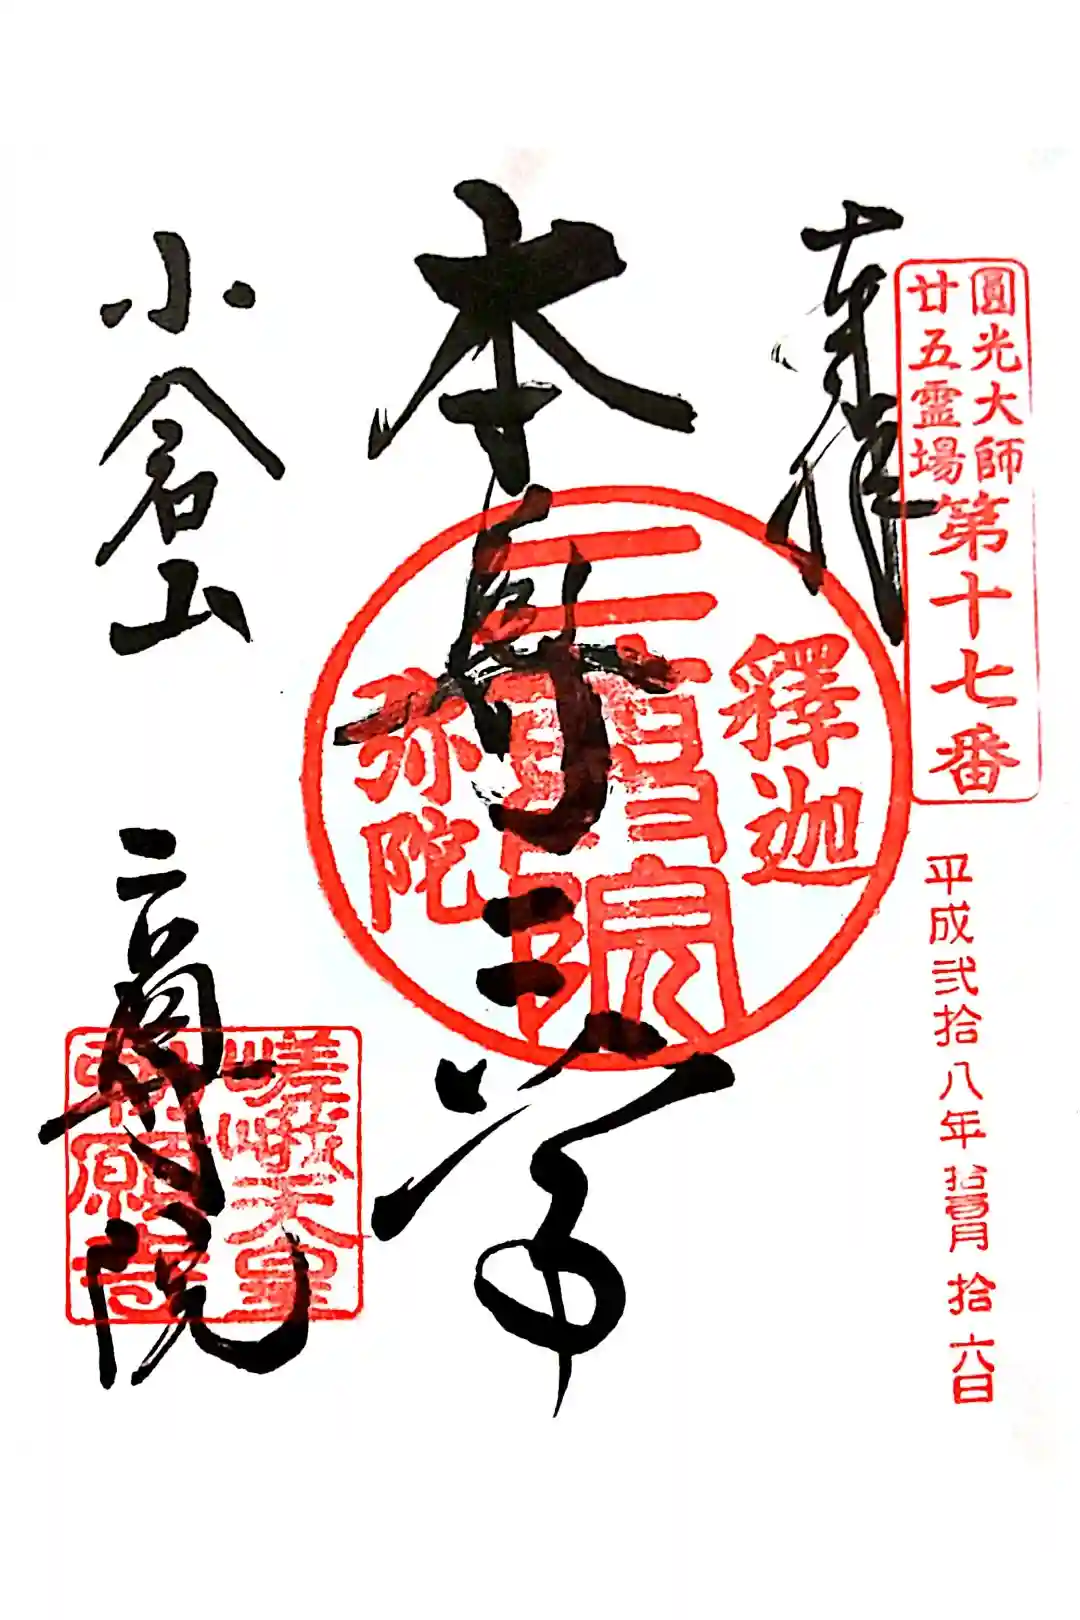 圓光大師
廿五霊場
第十七番
平成弐拾八年拾壹月拾六日
奉拝
本尊二尊
釋迦
二尊院
弥陀
小倉山
二尊院
嵯峨天皇
勅願寺